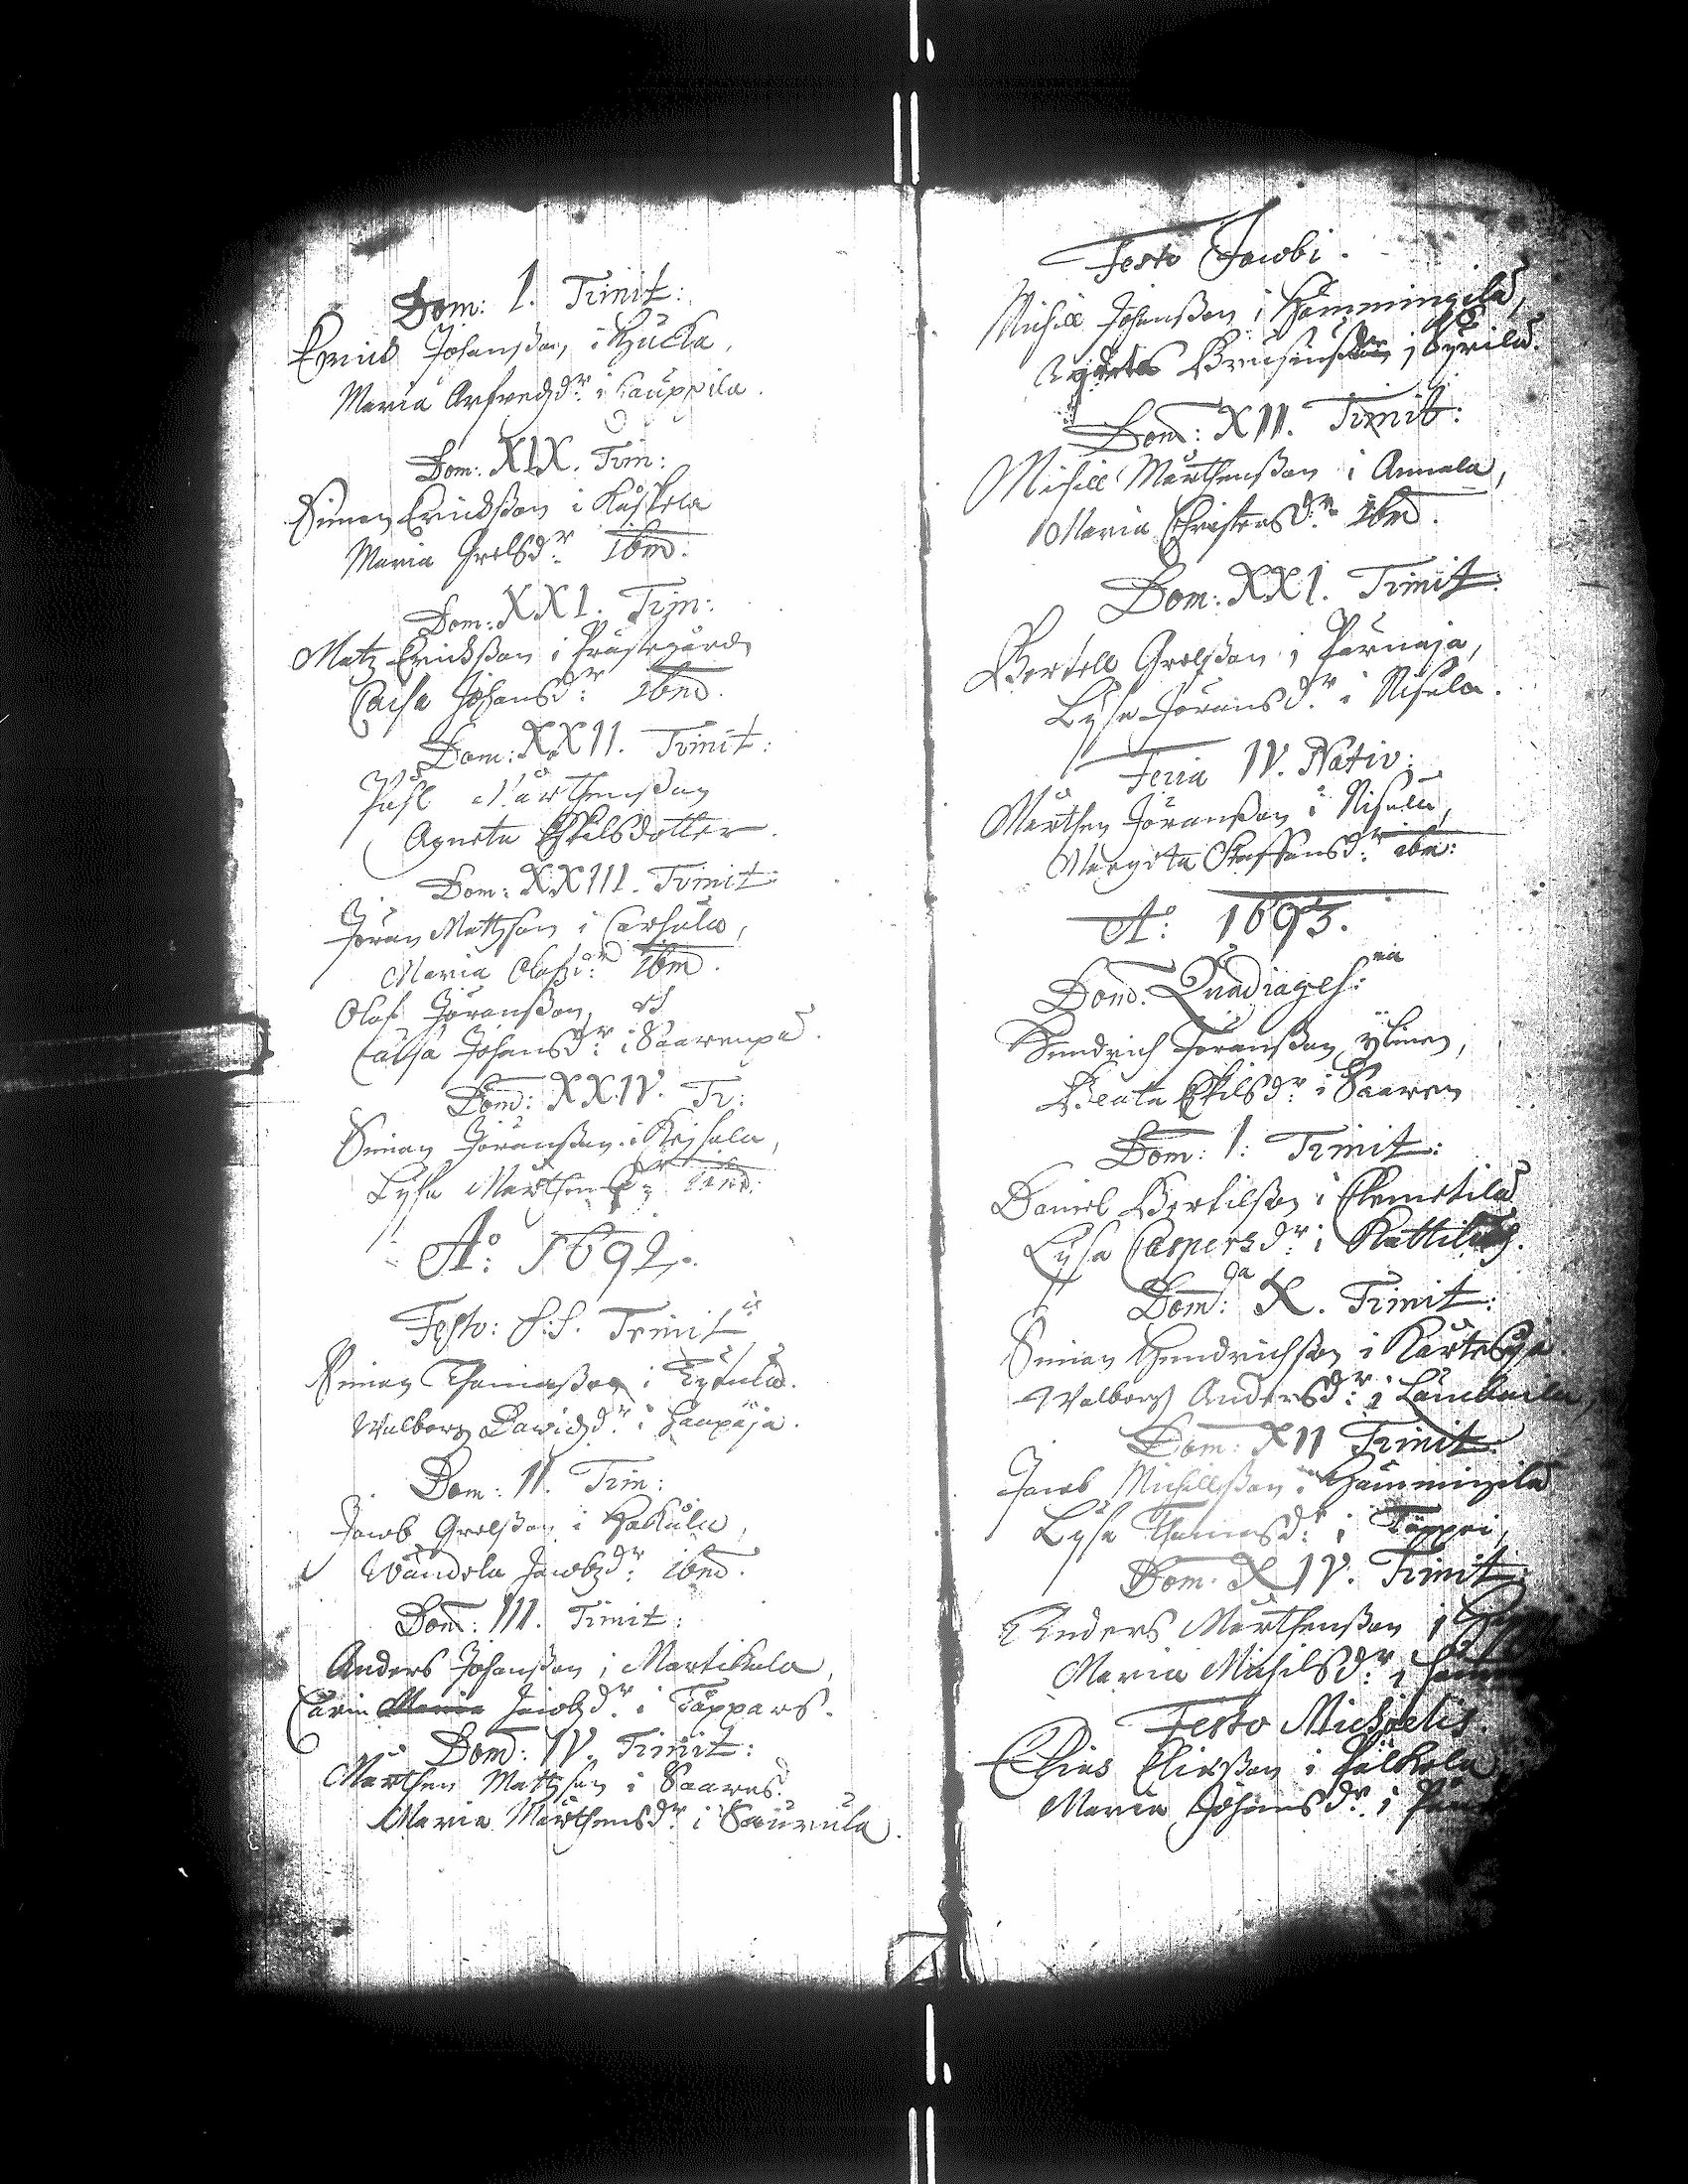 Dom: I. Trinit:
Erich Johansson i Hucka,
Maria Arfvedzdr: i Kauppila.
Dom: XIX. Trin:
Simon Erichsson i
Maria Grelsdr: ibm.
Dom: XXI. Trin:
Matz Erichsson i Prästegård
Caisa Johansdr: ibm.
Dom: XXII. Trinit:
Påhl Mårthensson
Agneta Eskilsdotter.
Dom: XXIII. Trinit:
Jöran Mattzson i
Maria Olafzdr: ibm.
Olof Jöransson, et
Caisa Johansdr: i Saarenpä.
Dom: XXIV. Tr:
Simon Jöransson i
Lysa Mårthensdr: ibm:
Ao: 1692.
Festo: S:S. Trinit:is
Simon Thomasson i
Walborg Davidzdr: i Haapoja.
Dom: II. Trin:
Jacob Grelsson i Hakula,
Wändela Jacobzdr: ibm.
Dom: III. Trinit:
Anders Johansson i Martikala,
Carin Maria Jacobzdr: i Tåppars.
Dom: IV. Trinit:
Mårthen Mattzson i Saares.
Maria Mårthensdr: i Saurula.
Festo Jacobi.
Michill Johansson i Hemmingilä,
i Kyrilä.
Dom: XII. Trinit:
Michill Mårthensson i Annala,
Maria Christersdr: ibm.
Dom: XXI. Trinit:
Bertell Grelsson i Pärnaja,
Lysa Jöransdr: i Nisula.
Feria IV. Nativ:
Mårthen Jöransson i Nisula,
Margeta Staffansdr: ibm:
Ao: 1693.
Dom. Quadrages:ma
Hendrich Jöransson Ylinen,
Beata Eskilsdr: i Saaren
Dom: I: Trinit:
Daniel Bertilsson i
Lysa Caspersdr: i
Dom: X. Trinit:
Simon Hendrichsson i Kartesoja.
Walborg Andersdr: i Lambaila,
Dom: XII Trinit:
Jacob Michillsson i Hämmingilä
Lysa Thomasdr: i Tåppri,
Dom. XIV. Trinit:
Anders Mårthensson i
Maria Michilsdr: i
Festo Michaelis.
Elias Eliasson i
Maria Johansdr: i